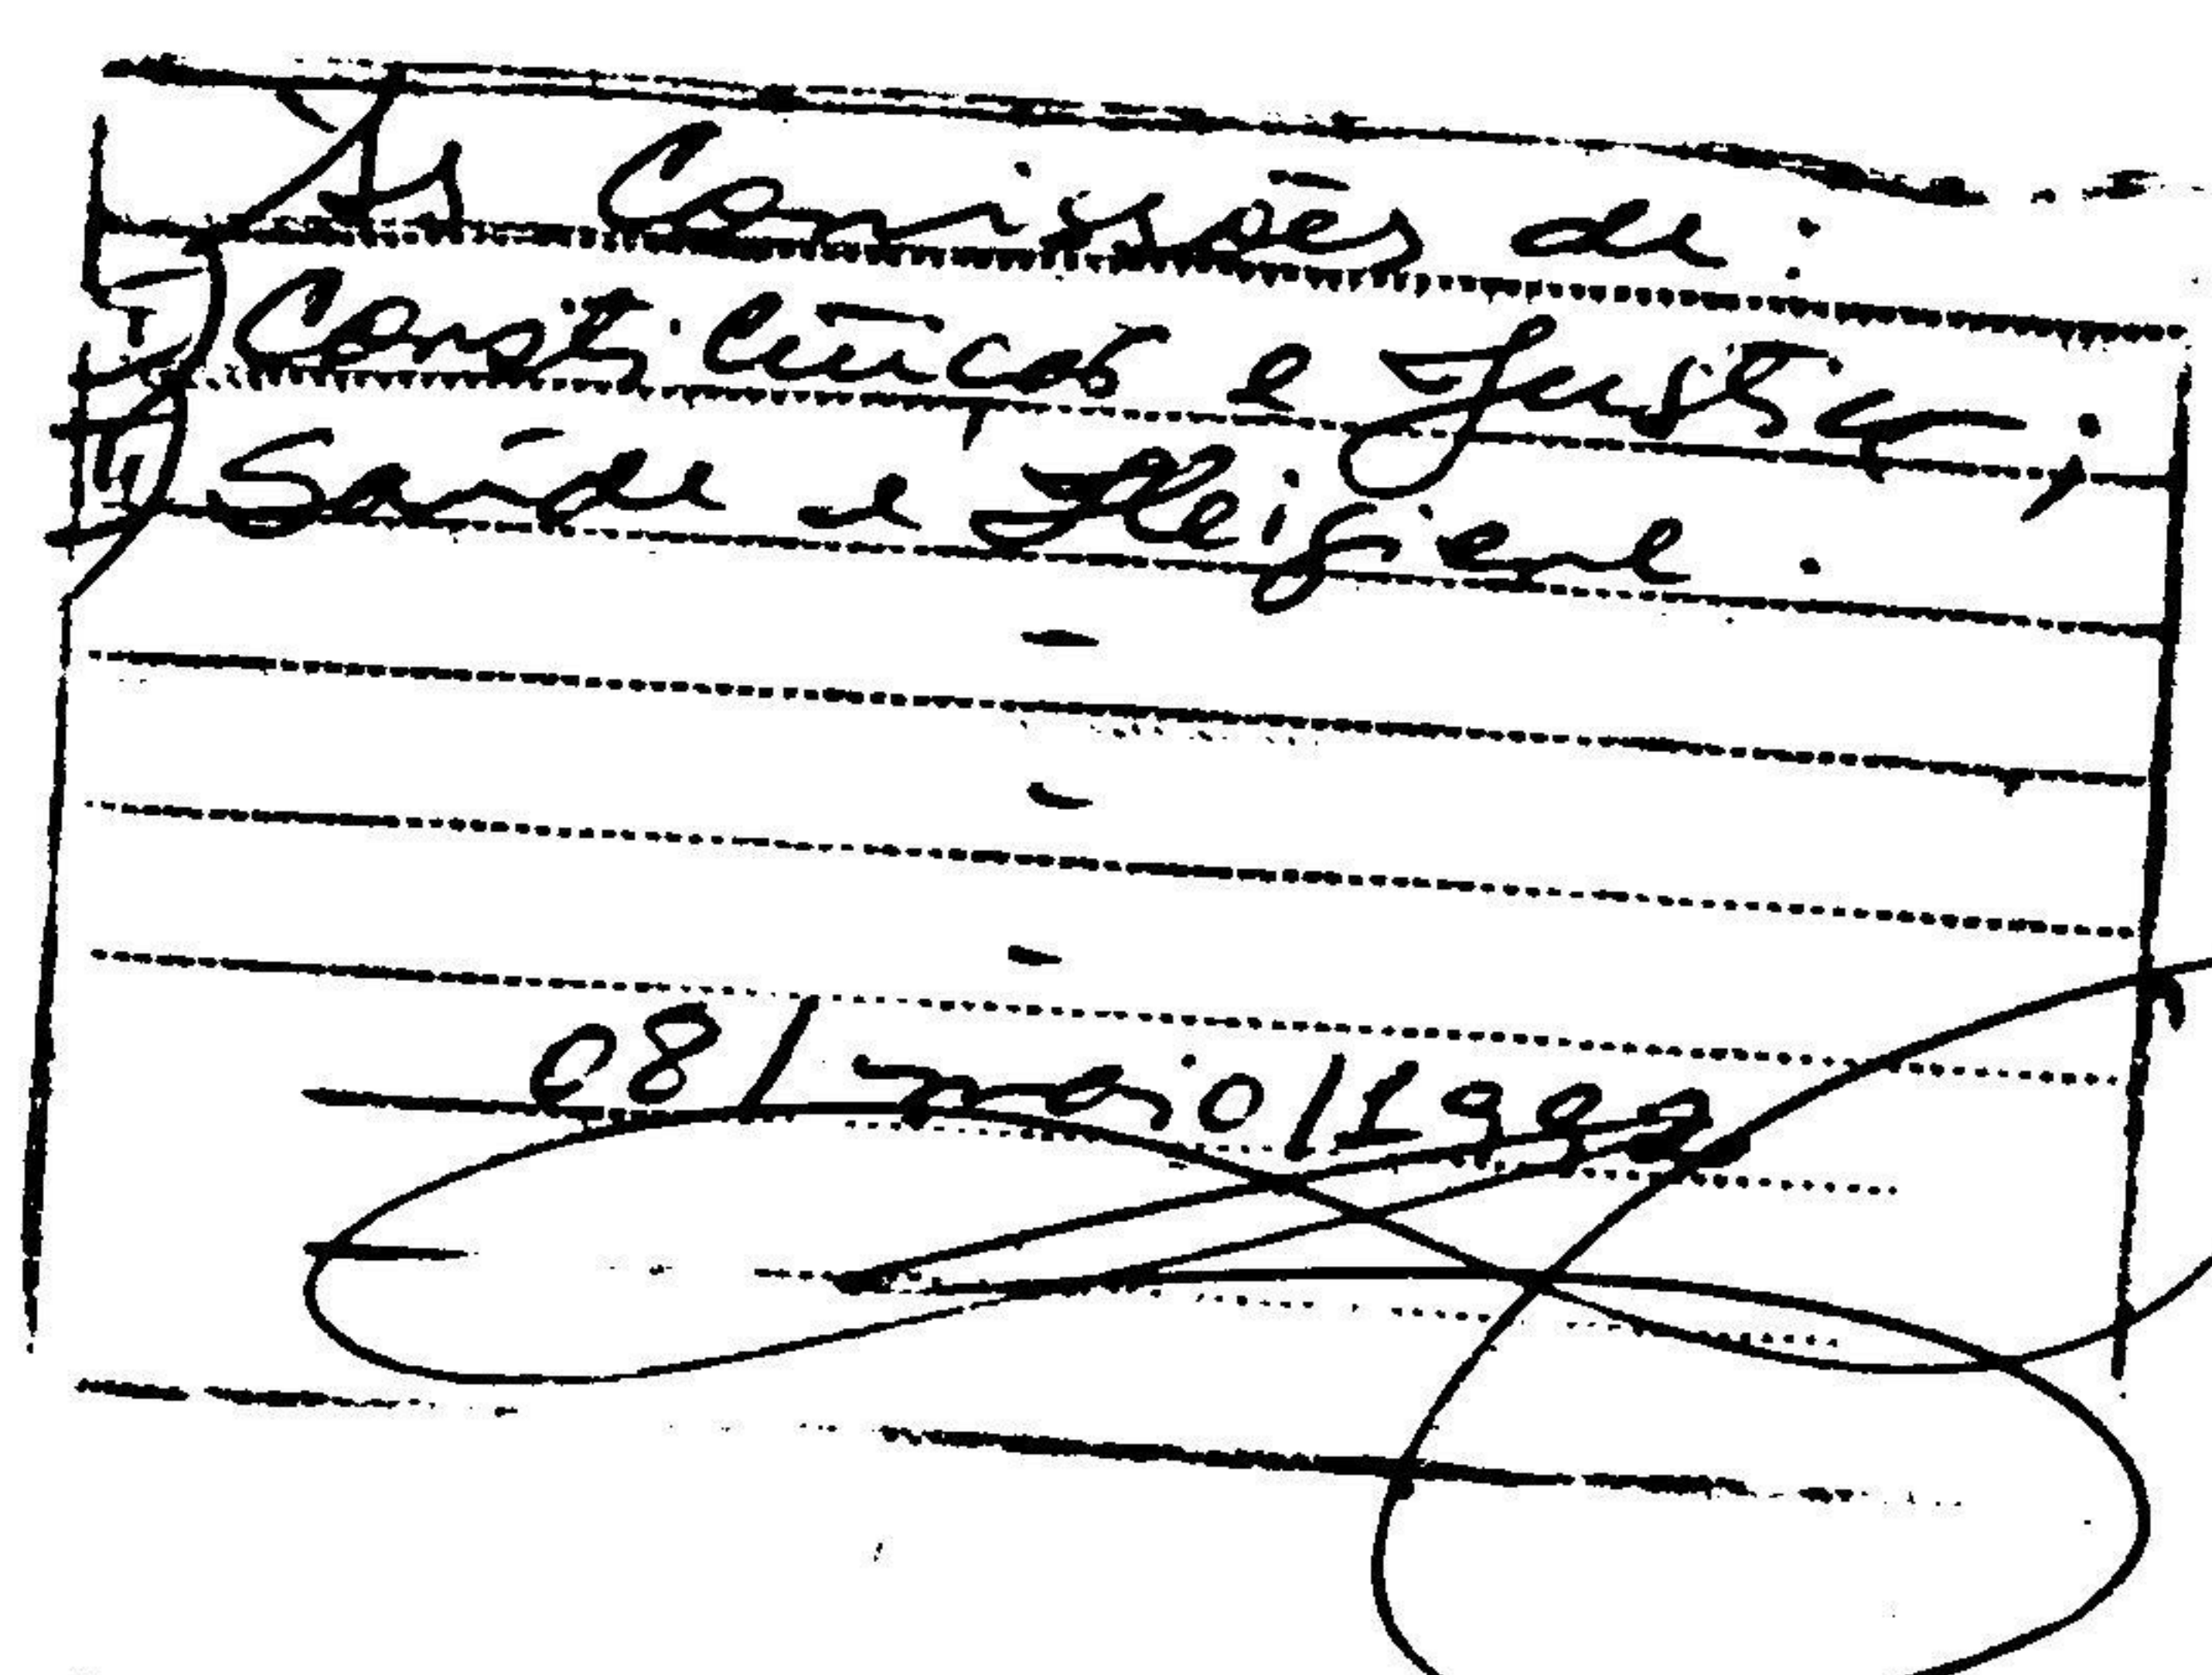 Às Comissões de:
I) Constituição e Justiça;
II) Saúde e Heigiene.
-
-
-
08/maio/1992